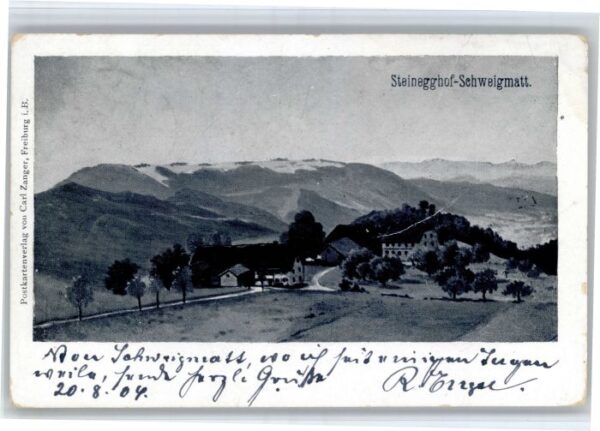 Steinegghof-Schweigmatt.
Postkartenverlag von Carl Zanger, Freiburg i. B.
Von Schweigmatt, wo ich seit einigen Tagen
weile, sende herzl. Grüße
20.8.04.